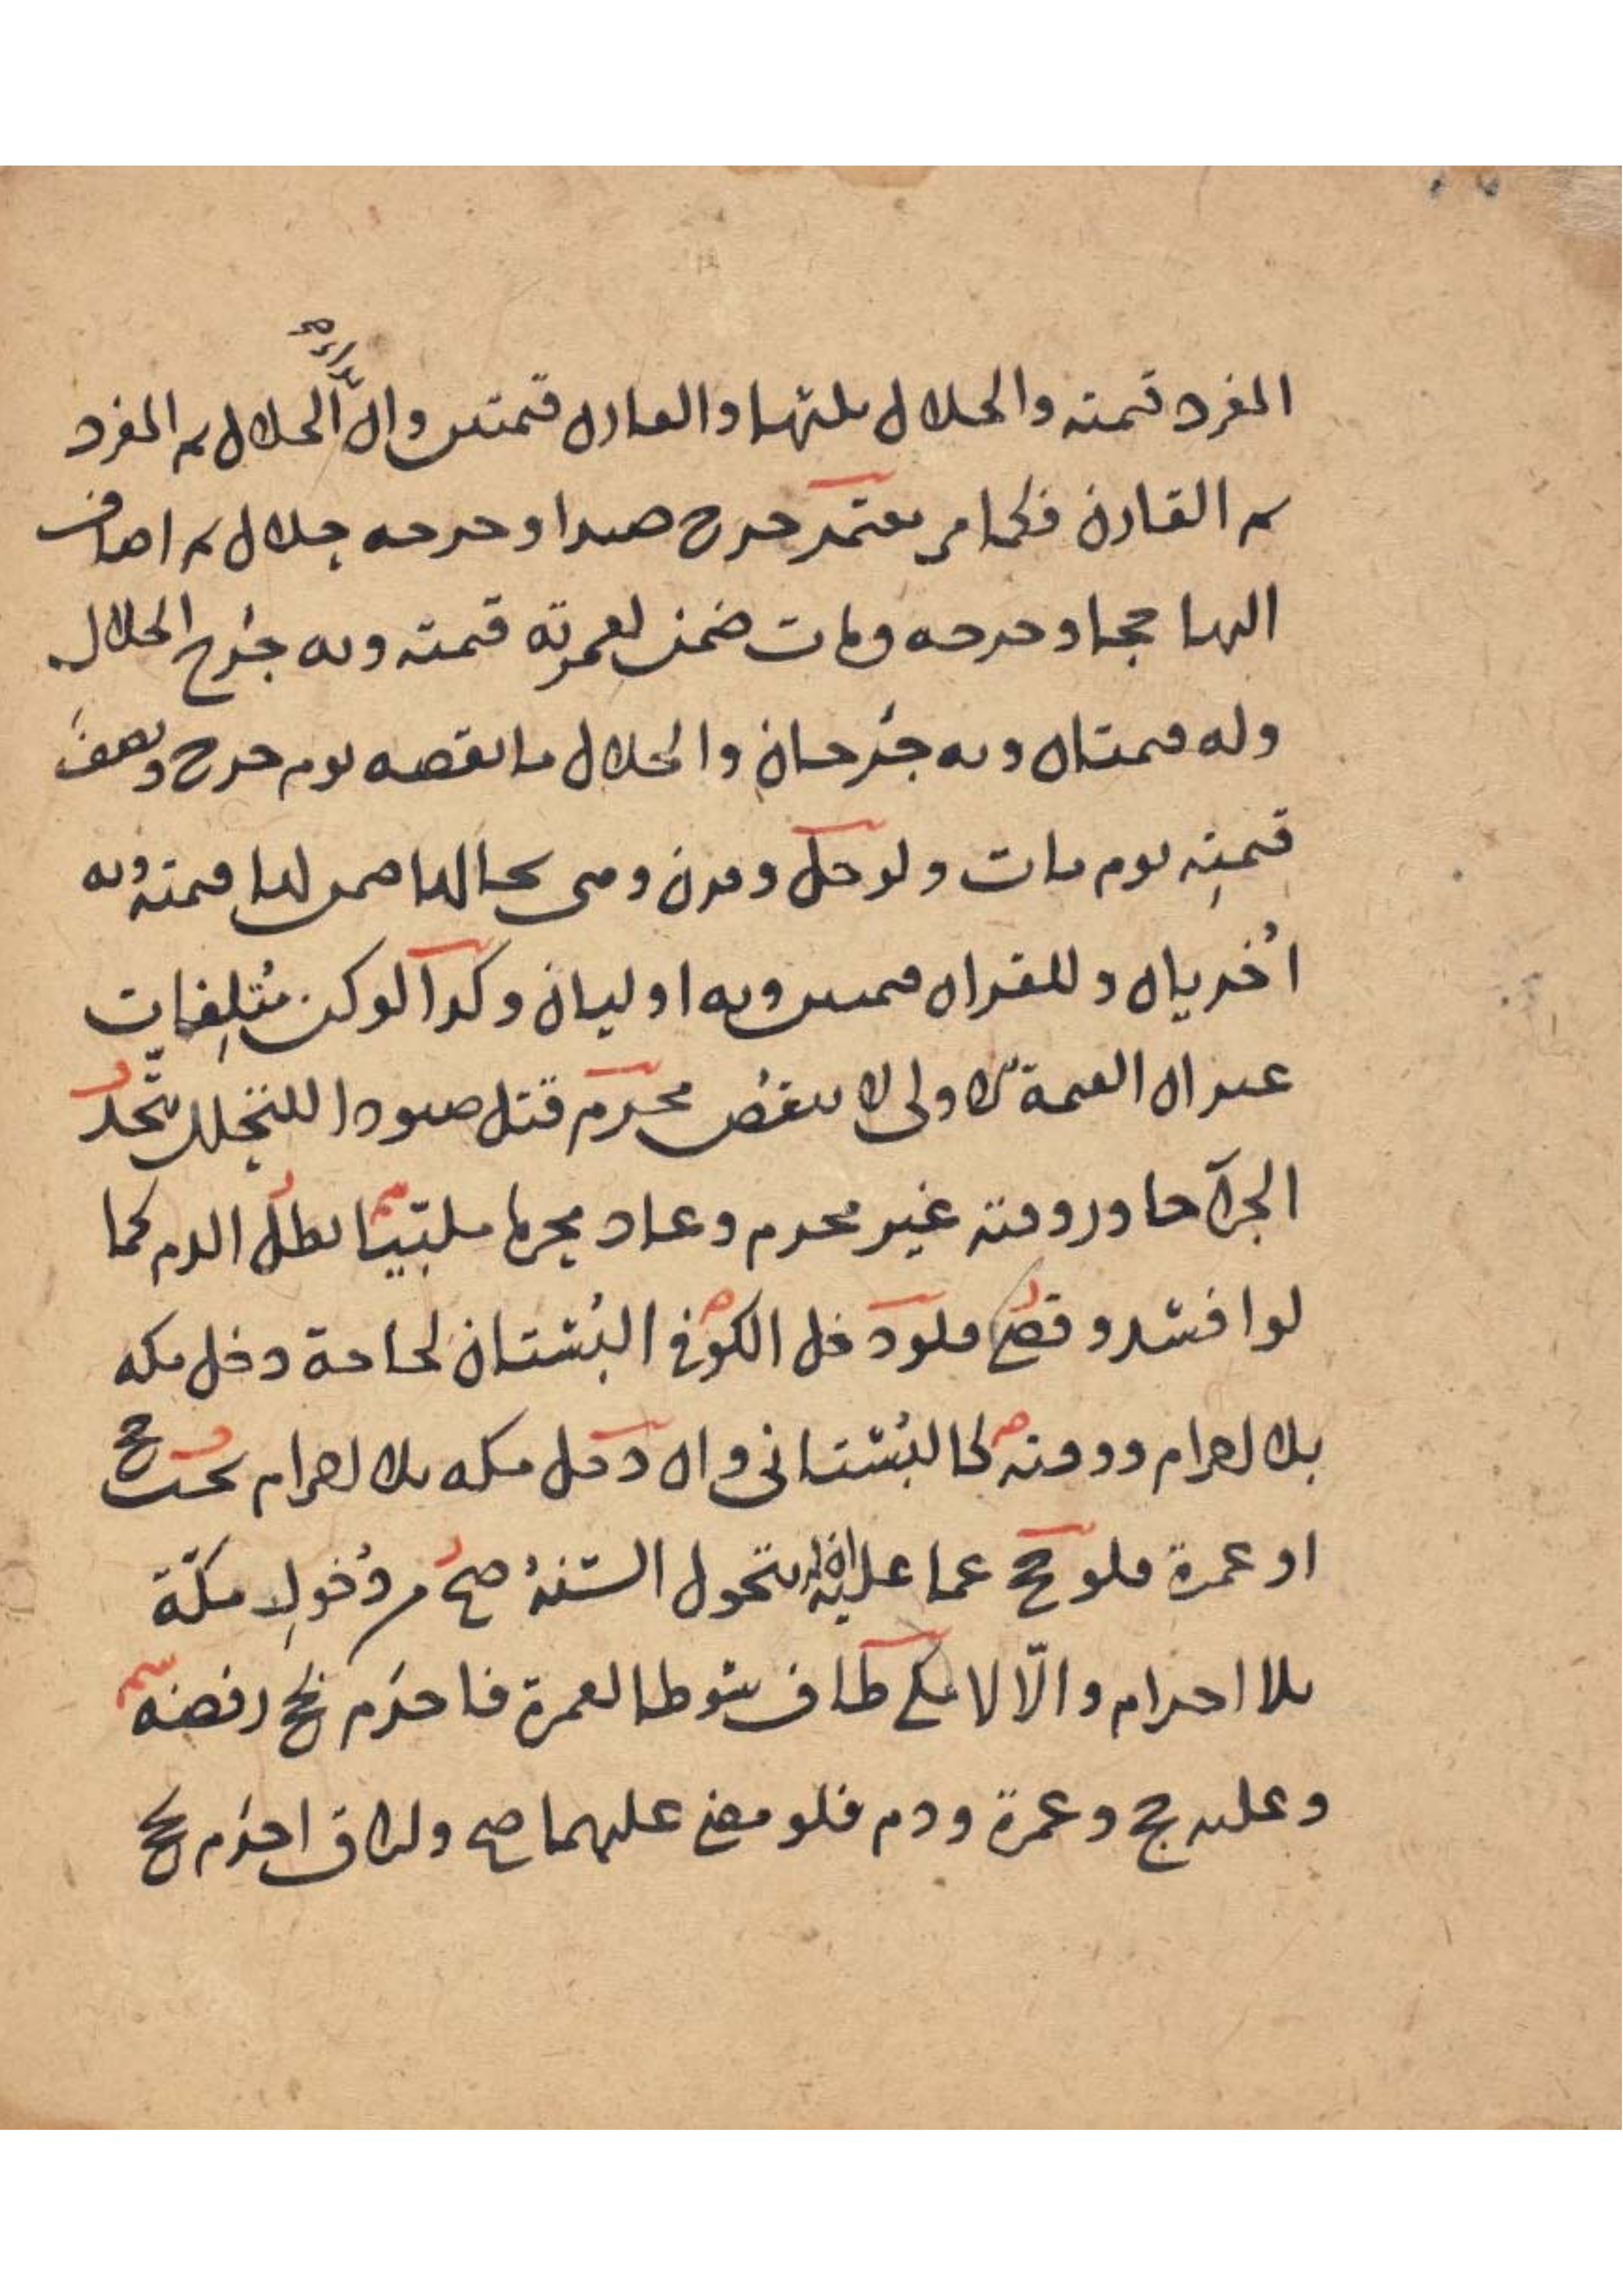 المفرد قيمته والحلال ثلثها والقارن قيمتين وان بدأ الحلال ثم المفرد
ثم القارن فكما مر معتمر جرح صيدا وجرحه حلال ثم اضاف
اليها حجا وجرحه ومات ضمن لعمرته قيمته وبه جرح الحلال
وله قيمتان وبه جرحان والحلال ما نقصه يوم جرح ونصف
قيمته يوم مات ولو حل وقرن ومى بحالها ضمن لها قيمته وبه
اخريان وللقران قيمتين وبه اوليان وكذا لو كن متلفات
غير ان القيمة الاولى لا تنقص محرم قتل صيودا للتحلل يتحد
الجزآ جاوز وقته غير محرم وعاد محرما ملبيا بطل الدم كما
لو افسد وقضى فلو دخل الكوفى البستان لحاجة دخل مكه
بلا احرام ووقته كالبستانى وان دخل مكه بلا احرام يجب حج
او عمرة فلو حج عما عليه لا ان يتحول السنة صح من دخول مكة
بلا احرام والا لا مكى طاف شوطا لعمرة فاحرم بحج رفضه
وعليه حج وعمرة ودم فلو مضى عليهما صح ولآفاق احرم بحج